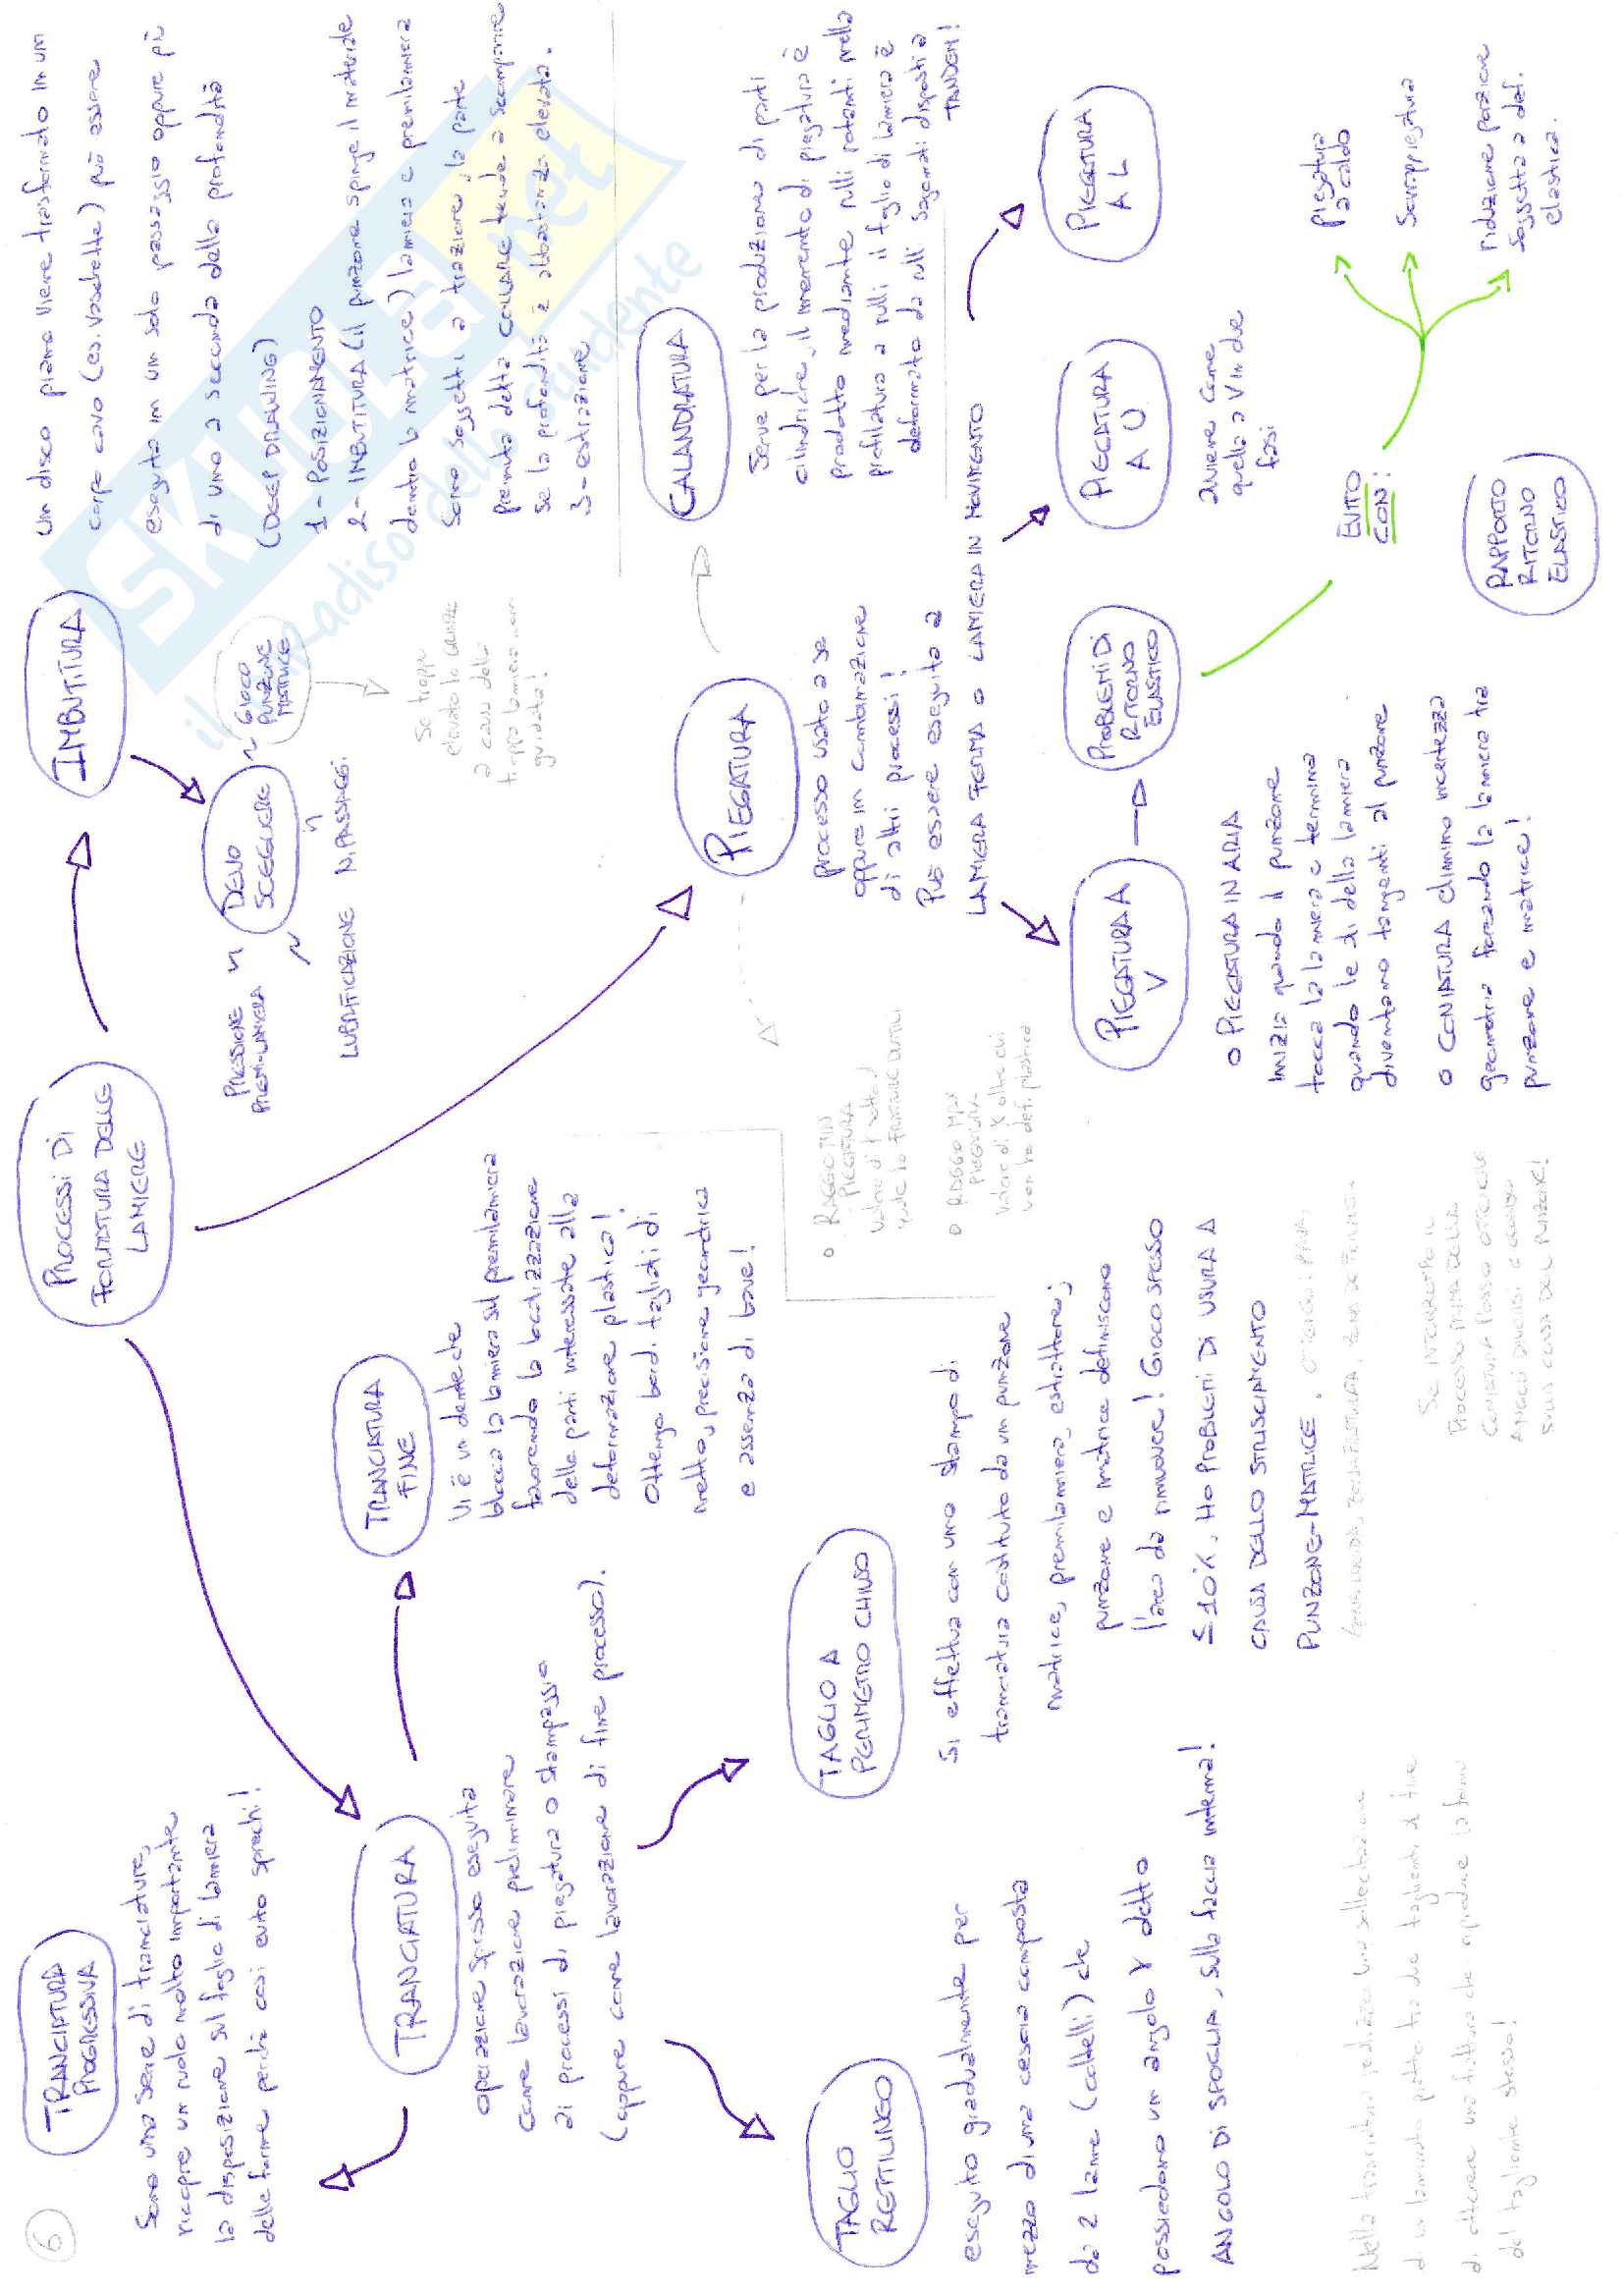 6
PROCESSI DI
FORMATURA DELLE
LAMIERE
TRANCIATURA
PROGRESSIVA
Sono una serie di tranciature,
ricopre un ruolo molto importante
la disposizione sul foglio di lamiera
delle forme perchè così evito sprechi!
TRANCIATURA
operazione spesso eseguita
come lavorazione preliminare
ai processi di piegatura o stampaggio
(oppure come lavorazione di fine processo).
TRANCIATURA
FINE
Vi è un dente che
blocca la lamiera sul premilamiera
favorendo la localizzazione
delle parti interessate alla
deformazione plastica!
Ottengo bordi tagliati di
netto, precisione geometrica
e assenza di bave!
TAGLIO
RETTILINEO
eseguito gradualmente per
mezzo di una cesoia composta
da 2 lame (coltelli) che
possiedono un angolo γ detto
ANGOLO DI SPOGLIA, sulla faccia interna!
TAGLIO A
PERIMETRO CHIUSO
Si effettua con uno stampo di
tranciatura costituito da un punzone
matrice, premilamiera, estrattore;
punzone e matrice definiscono
l'area da rimuovere! Gioco spesso
≤ 10%, HO PROBLEMI DI USURA A
CAUSA DELLO STRISCIAMENTO
PUNZONE-MATRICE.
Nella tranciatura si realizza una sollecitazione
del tagliente stesso!
IMBUTITURA
Un disco piano viene trasformato in un
corpo cavo (es. vaschette) può essere
eseguita in un solo passaggio oppure più
di uno a seconda della profondità
(DEEP DRAWING)
1- POSIZIONAMENTO
2- IMBUTITURA (il punzone spinge il materiale
dentro la matrice) lamiera e premilamiera
sono soggetti a trazione, la parte
premuta detta COLLARE tende a scomparire
se la profondità è abbastanza elevata.
3- estrazione
DEVO
SCEGLIERE
PRESSIONE
PREMI-LAMIERA
LUBRIFICAZIONE
N. PASSAGGI
GIOCO
PUNZONE
MATRICE
Se troppo
elevato la
a causa della
troppa lamiera non
guidata!
PIEGATURA
processo usato a se
oppure in combinazione
di altri processi!
Può essere eseguito a
LAMIERA FERMA O LAMIERA IN MOVIMENTO
CALANDRATURA
Serve per la produzione di parti
cilindriche, il momento di piegatura è
prodotto mediante rulli rotanti nella
profilatura a rulli il foglio di lamiera è
deformato da rulli sagomati disposti a
TANDEM!
o RAGGIO MIN
PIEGATURA
o RAGGIO MAX
PIEGATURA
valore di r oltre cui
non ho def. plastica
PIEGATURA A
V
o PIEGATURA IN ARIA
inizia quando il punzone
tocca la lamiera e termina
quando le ali della lamiera
diventano tangenti al punzone
o CONIATURA elimino incertezza
geometria forzando la lamiera tra
punzone e matrice!
Se INTERROMPO IL
PROCESSO PRIMA DELLA
CONIATURA POSSO OTTENERE
ANGOLI DIVERSI A SECONDA
DELLA CORSA DEL PUNZONE!
PROBLEMI DI
RITORNO
ELASTICO
PIEGATURA
A U
avviene come
quella a V in due
fasi
PIEGATURA
A L
EVITO
CON:
Piegatura
a caldo
Sovrappiegatura
riduzione porzione
soggetta a def.
elastica.
RAPPORTO
RITORNO
ELASTICO
SKUOLA.net
il paradiso dello studente